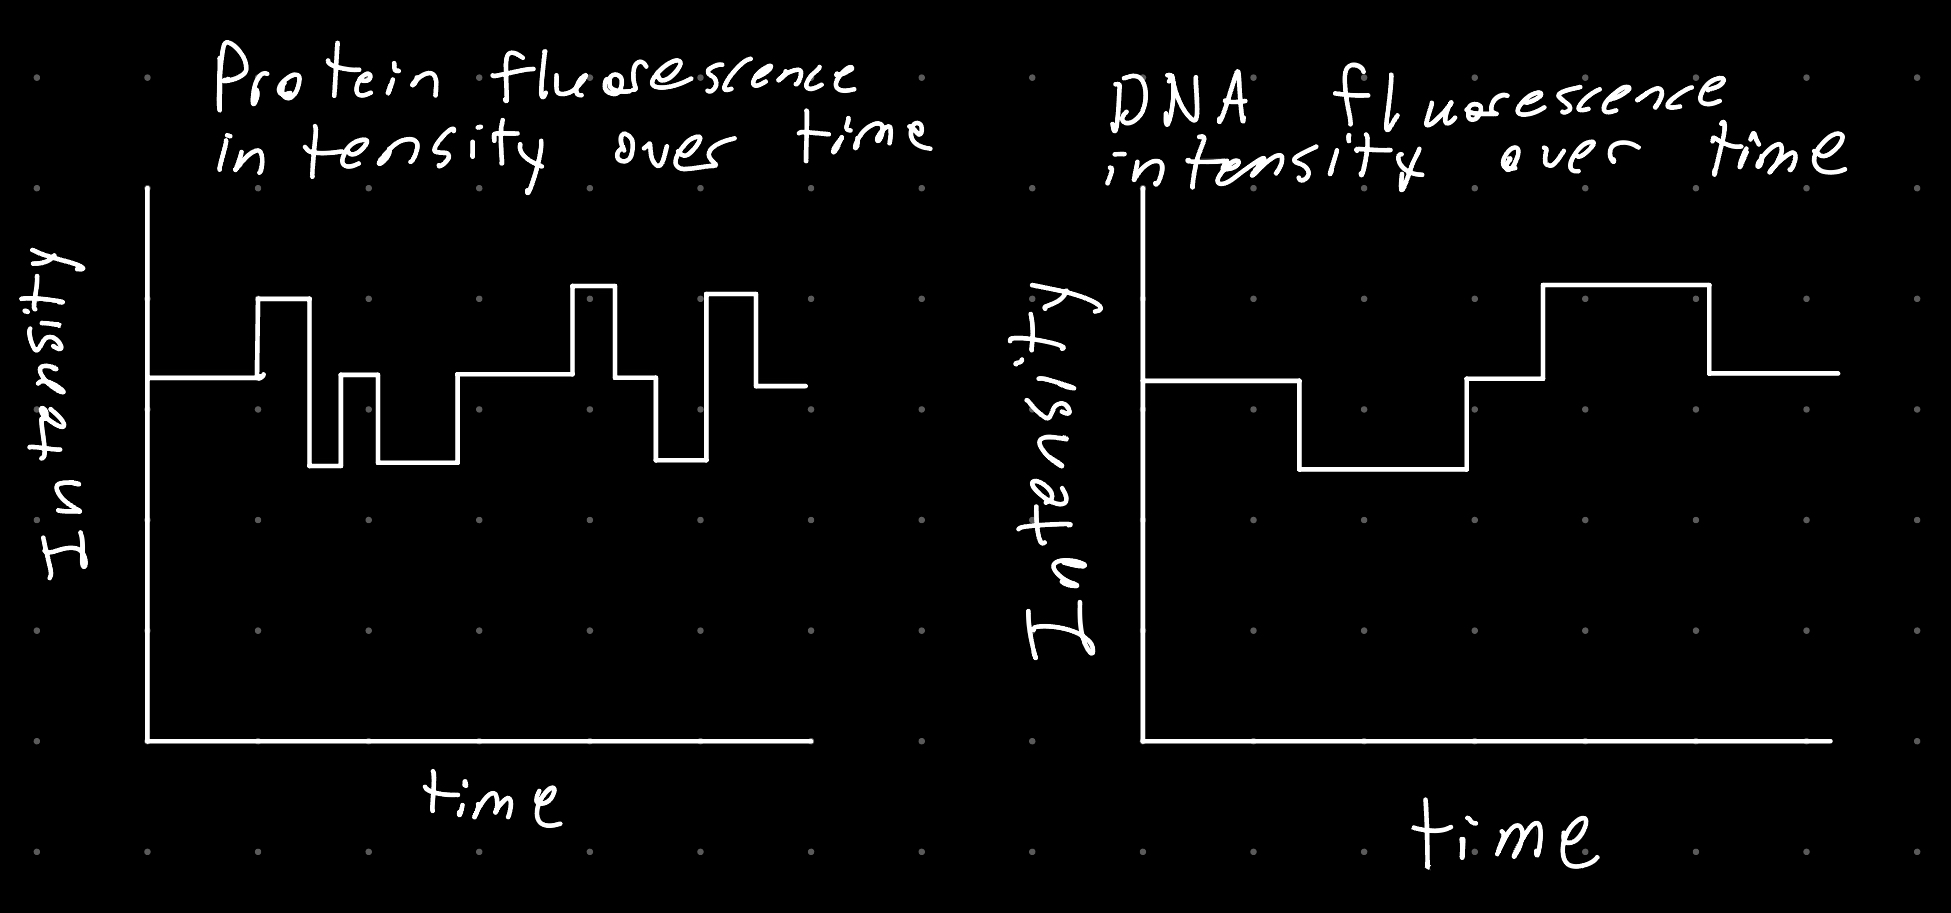 Protein fluorescence
intensity over time
Intensity
time
DNA fluorescence
intensity over time
Intensity
time